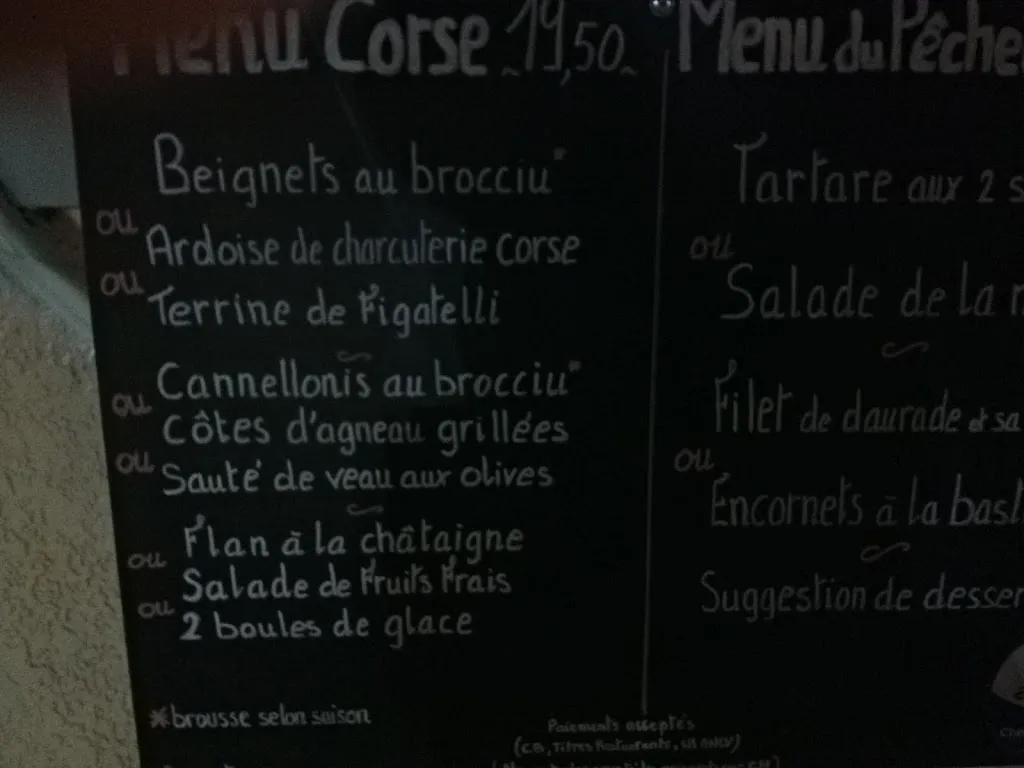 Menu Corse 19,50
Beignets au brocciu*
ou
Ardoise de charcuterie corse
ou
Terrine de Figatelli
Cannellonis au brocciu*
ou
Côtes d'agneau grillées
ou
Sauté de veau aux olives
Flan à la châtaigne
ou
Salade de Fruits Frais
ou
2 boules de glace
*brousse selon saison
Menu du Pêche
Tartare aux 2 s
ou
Salade de la
Filet de daurade et sa
ou
Encornets à la bas
Suggestion de desser
Paiements acceptés
(CB, Titres Restaurants,